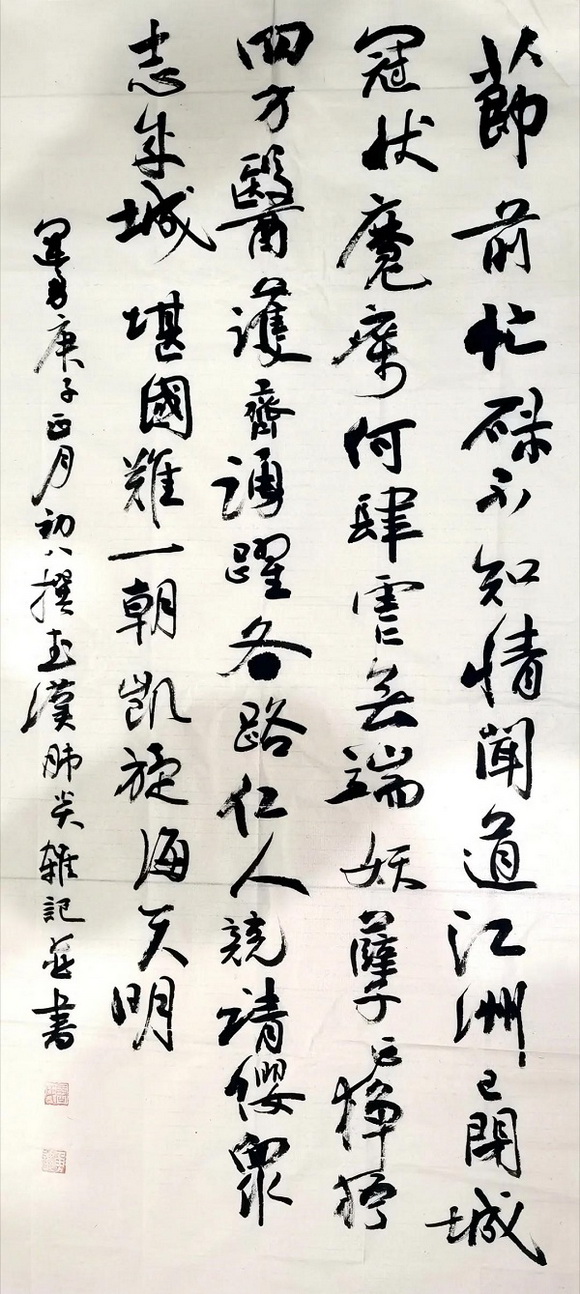 節前忙碌不知情聞道江洲已閉城
冠狀魔癘何肆虐無端妖孽亡猙獰
四方醫護齊踴躍各路仁人競請纓眾
志成城堪國難一朝凱旋海天明
庚子正月初八撰武漢肺炎雜記並書